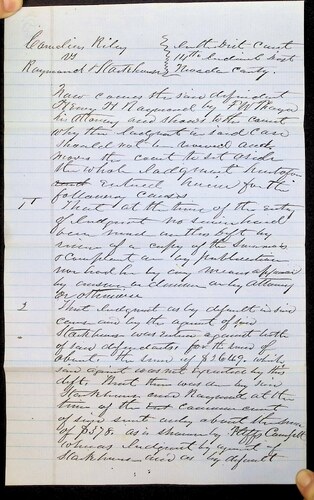 Cornelius Riley
vs
Raymond & Starkhouse
In the Dist Court
14th Judicial Dist
Nevada County.
Now comes the said defendant
Henry H Raymond by
his Attorney and shows to the court
why the Judgment in said case
should not be and
moves the court to set aside
the whole Judgment heretofore
entered herein for the
following causes
1st That at the time of the entry
of Judgment no service had
been made on this deft by
of a copy of the Summons
& Complaint or by publication
nor had he by any means appeared
by answer or demurrer or by Attorney
or otherwise
2 That Judgment as by default in said
cause by the agent of said
Starkhouse was taken against both
of said defendants for the sum of
about the sum of $3649. which
said was not by this
deft. That there was due by said
Starkhouse and Raymond at the
time of the commencement
of said suit only about the sum
of $378. as is shown by Plffs Complt
whereas Judgment by agent of
Starkhouse and as by default